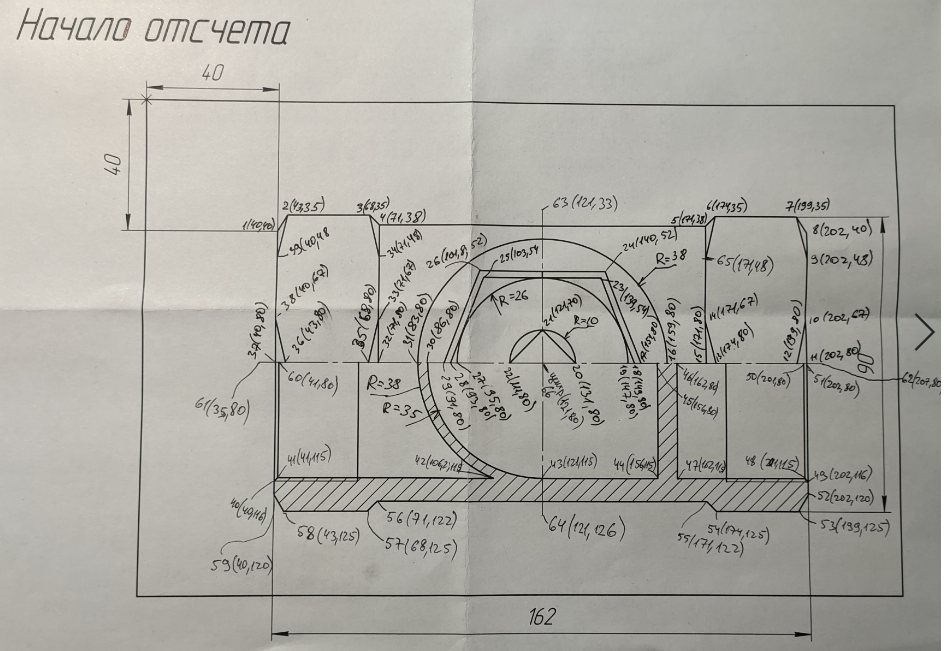 Начало отсчета
40
40
63 (121,33)
2 (43,35)
3 (68,35)
4 (71,38)
5 (171,38)
6 (174,35)
7 (199,35)
1 (40,40)
8 (202,40)
39 (40,48
34 (71,48)
26 (101,8; 52)
25 (103,54
24 (140,52)
R=38
65 (17,48)
9 (202,48)
38 (40,67)
33 (71,67)
R=26
23 (139,54)
21 (121,70)
R=10
14 (171,67)
10 (202,67)
37 (40,80)
36 (43,80)
35 (68,80)
32 (71,80)
31 (83,80)
30 (86,80)
16 (159,80)
15 (171,80)
13 (174,80)
12 (199,80)
11 (202,80)
62 (207,80
61 (35,80)
60 (41,80)
R=38
R=35
29 (91,80)
28 (93,80)
27 (95,80)
20 (131,80)
18 (149,80)
19 (147,80)
46 (162,80)
45 (159,80)
50 (201,80)
51 (202,80)
90
41 (41,115)
42 (106,2; 115
43 (121,115)
44 (156,115)
47 (162,115
49 (202,116)
40 (40,116)
52 (202,120)
58 (43,125)
56 (71,122)
57 (68,125)
64 (121,126)
54 (174,125)
55 (171,122)
53 (199,125)
59 (40,120)
162